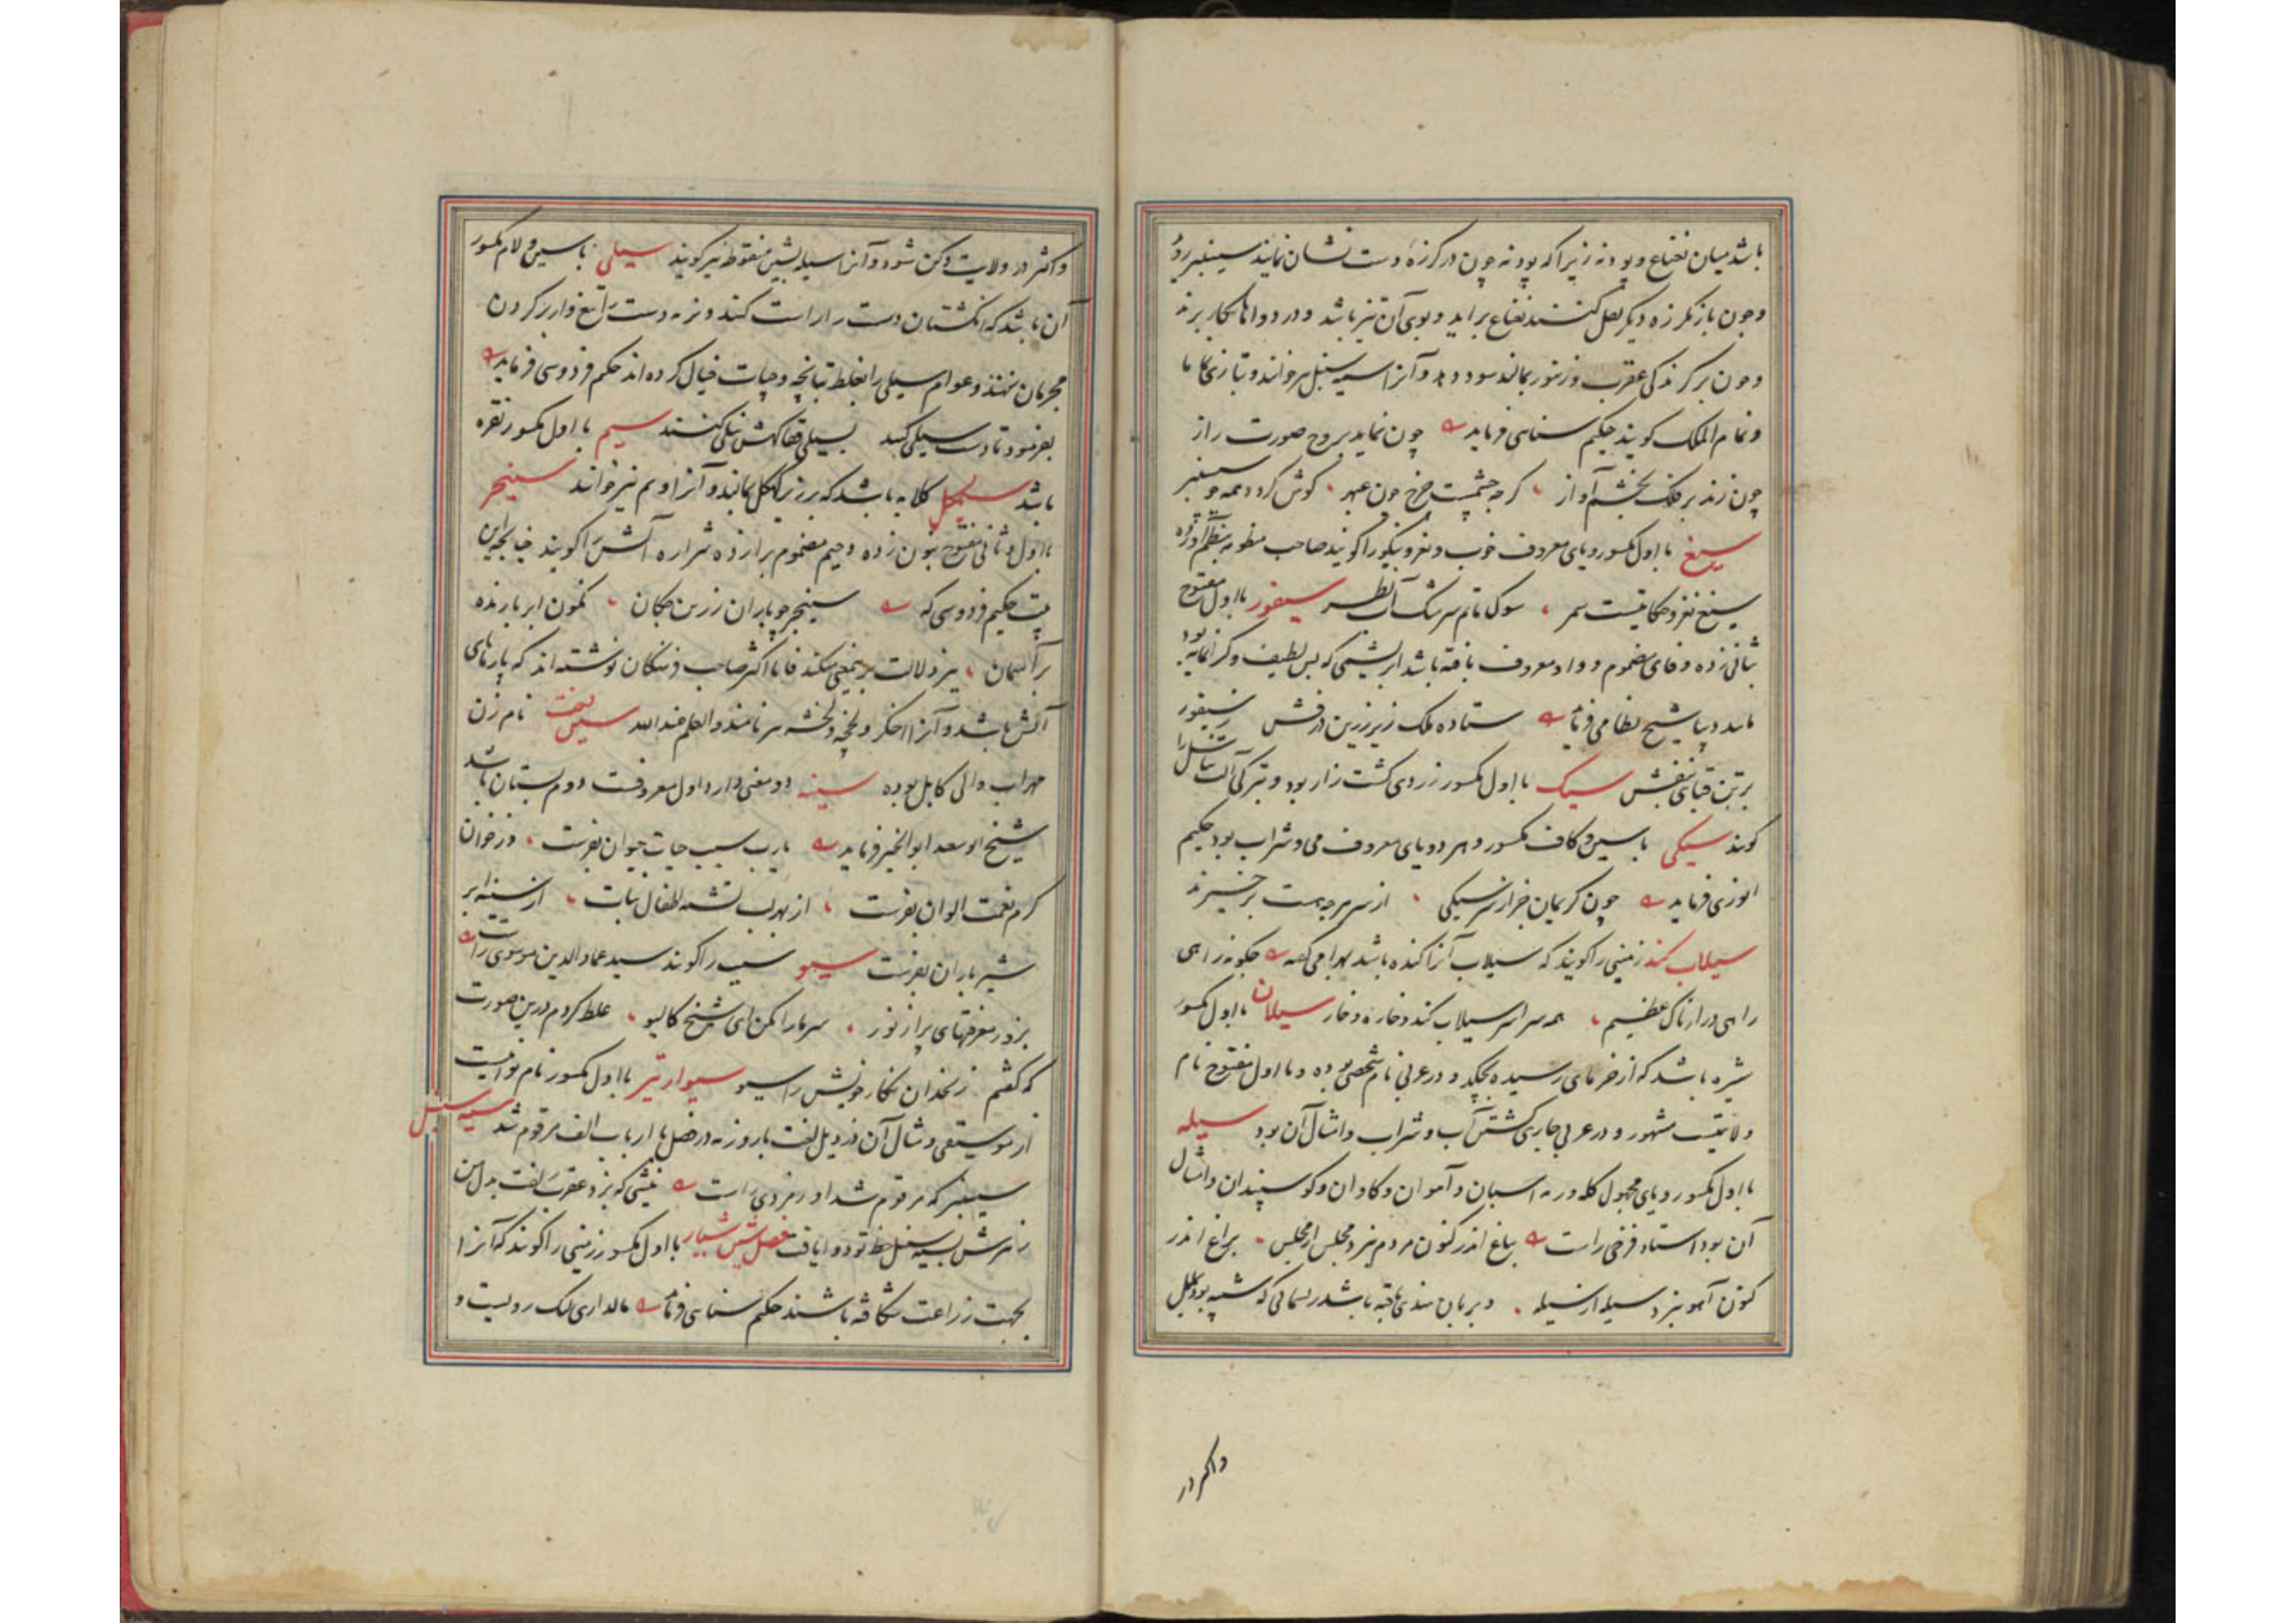 باشد میان نعناع و پودنه زیرا که پودنه چون در کرزه دست نشان نمایند سیسنبر روُ
و چون باز بکرزه دیکر نقل کنند نعناع براید و بوی آن تیز باشد و در دواها بکار برند
و چون بر کزندکی عقرب و زنبور بمالند سود دهد و آنرا سیسنبل نیز خوانند و بتازی
و نمام الملک کویند حکیم سنائی فرماید چون نماید بروح صورت راز
چون زند بر فلک بخشم آواز کرچه چشمست چرخ چون عبهر کوش کردد همه چو سیسنبر
سیغ با اول مکسور و یای معروف خوب و نغز و نیکو را کویند صاحب منظومه بنظم آورده
سیغ نغز و حکایتست سمر سوک ماتم سرشک آب سیفور با اول مفتوح
بثانی زده و فای مضموم و واو معروف بافته باشد ابریشمی که بس لطیف و کرانمایه بود
مانند دیبا شیخ نظامی فرماید ستاده ملک زیر زرین درفش ز سیفور
بر تن قبای بنفش سیک با اول مکسور زردی کشت زار بود و بترکی آلت تناسل را
کویند سیکی با سین و کاف مکسور و هر دو یای معروف می و شراب بود حکیم
انوری فرماید چون کریمان خراز سر سیکی از سر هرچه هست برخیزند
سیلاب کند زمینی را کویند که سیلاب آنرا کنده باشد بهرامی کفته چکونه راهی
راهی درازناک عظیم همه سراسر سیلاب کند و خاره و خار سیلان با اول مکسور
شیره باشد که از خرمای رسیده بچکد و در عربی نام شخصی بوده و با اول مفتوح نام
ولایتیست مشهور و در عربی جاری کشتن آب و شراب و امثال آن بود سیله
با اول مکسور و یای مجهول کله و رمه اسبان و آهوان و کاوان و کوسپندان و امثال
آن بود استاد فرخی راست بباغ اندر کنون مردم نبرد مجلس از مجلس براغ اندر
کنون آهو نبرد سیله از سیله و بزبان هندی بافته باشد ریسمانی که شبیه بود
واکثر در
واکثر در ولایت دکن شود و آنرا سیله بشین منقوط نیز کویند سیلی با سین و لام مکسور
آن باشد که انکشتان دست را راست کنند و نرمه دست را تیغ وار بر کردن
مجرمان نهند و عوام سیلی را بغلط تپانچه و چپات خیال کرده اند حکیم فردوسی فرماید
بفرمود تا دست سیلی کنند بسیلی قفا کهش نیلی کنند سیم با اول مکسور نقره
باشد سیمکل کلابه باشد که بر زبر کاهکل بمالند و آنرا نیز خوانند سینجر
با اول و ثانی مفتوح بنون زده و جیم مضموم برا زده شراره آتش را کویند چنانچه این
بیت حکیم فردوسی که سینجر چو باران زرین چکان نمون ابر بارنده
بر آسمان نیز دلالت برین معنی میکند فاما اکثر صاحب فرهنکان نوشته اند که پارهای
آتش باشد و آنرا اخکر و لخچه و لخشه نیز نامند والعلم عندالله سیندخت نام زن
مهراب والی کابل بوده سینه دو معنی دارد اول معروفست دوم پستان باشد
شیخ ابو سعد ابو الخیر فرماید یارب سبب حیات حیوان بفرست وز خوان
کرم نعمت الوان بفرست از بهر لب تشنه طفلان نبات از سینه ابر
شیر باران بفرست سیو سیب را کویند سید عماد الدین موسوی راست
بزور معرفتهای پر از نور سرمارا مکن ای شیخ کالیو غلط کردم درین صورت
که کفتم زنخدان نکار خویش را سیو سیوار تیر با اول مکسور نام نوائیست
از موسیقی و مثال آن در ذیل لغت باروزنه در فصل با از باب الف مرقوم شد سیه سنبل
سیسنبر که مرقوم شد اورمزدی راست نیشی که بزد عقرب زلفت بدل من
زهرش بسیه سنبل خط تو دوا یافت فصل شین شیار با اول مکسور زمینی را کویند که آنرا
بجهت زراعت شکافه باشند حکیم سنائی فرماید مالداری لیک رویست و